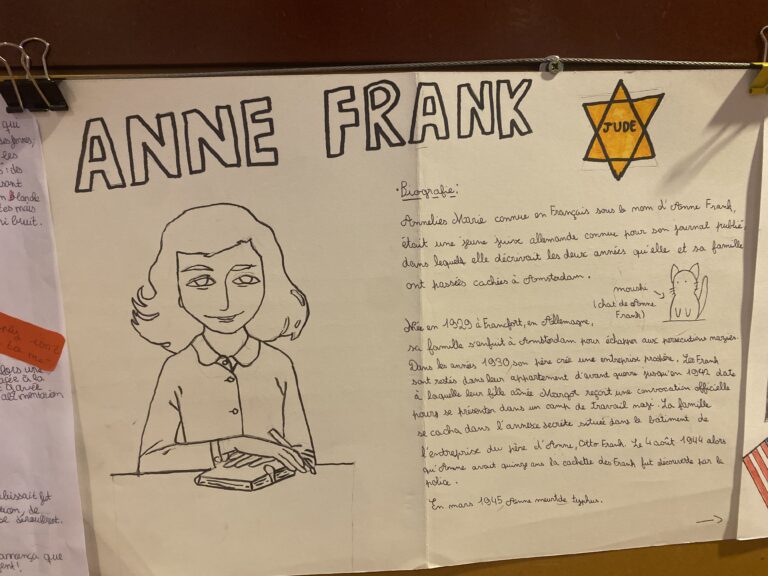 ANNE FRANK
JUDE
• Biografie :
Annelies Marie connue en Français sous le nom d'Anne Frank,
était une jeune juive allemande connue pour son journal publié
dans lequel elle décrivait les deux années qu'elle et sa famille
ont passées cachées à Amsterdam.
moushi
(chat de Anne
Frank)
Née en 1929 à Francfort, en Allemagne,
sa famille s'enfuit à Amsterdam pour échapper aux persécutions nazies.
Dans les années 1930, son père crée une entreprise prospère. Les Frank
sont restés dans leur appartement d'avant guerre jusqu'en 1942 date
à laquelle leur fille aînée Margot reçoit une convocation officielle
pour se présenter dans un camp de travail nazi. La famille
se cacha dans l'annexe secrète située dans le bâtiment de
l'entreprise du père d'Anne, Otto Frank. Le 4 août 1944 alors
qu'Anne avait quinze ans la cachette des Frank fut découverte par la
police.
En mars 1945 Anne meurt de typhus.
qui
les
des
blanche
tes mais
ni bruit.
lors une
à la
alimentation
tion, de
amença que
gent!